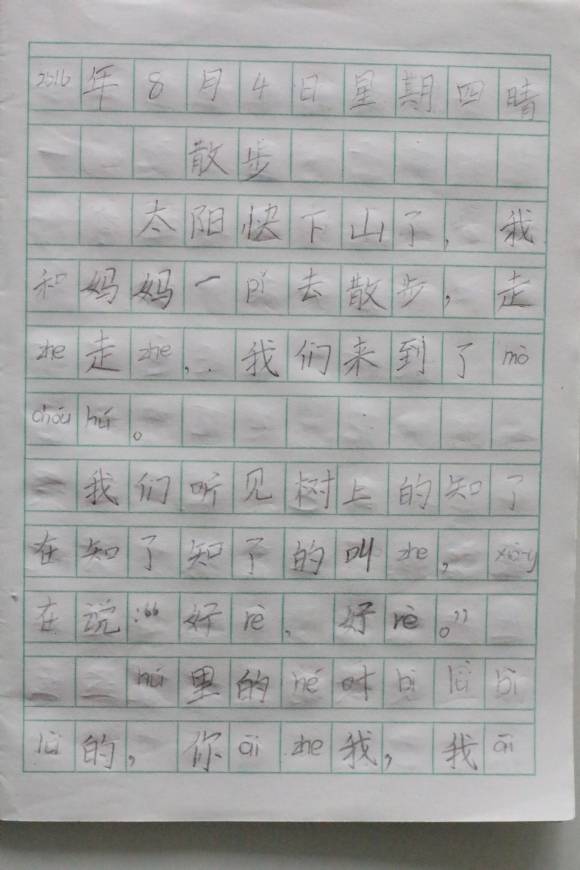 2016年8月4日星期四晴
散步
太阳快下山了，我
和妈妈一pǐ去散步，走
zhe走zhe，我们来到了mò
chóu hú。
我们听见树上的知了
在知了知了的叫zhe，
在说:“好rè、好rè。”
hú里的hé叶bì lǜ bì
lǜ的，你āi zhe我，我āi